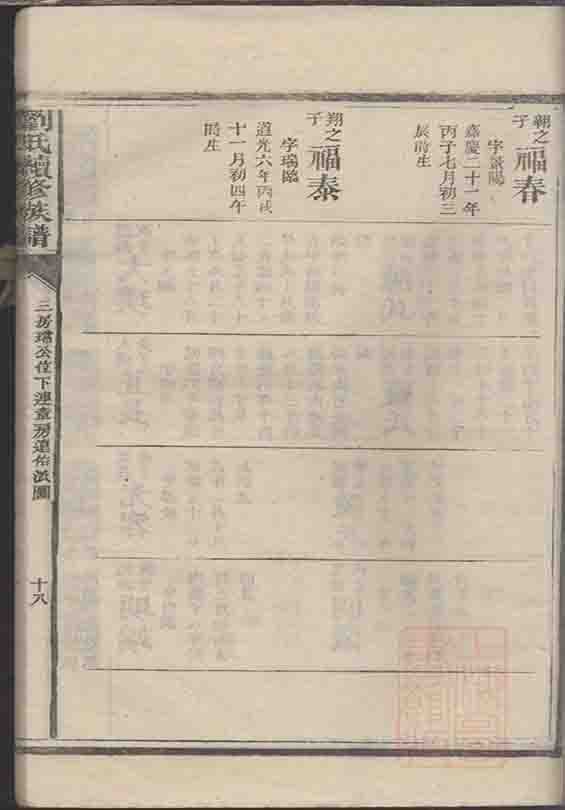 翱之子
福春
字景陽
嘉慶二十一年
丙子七月初三
辰時生
翔之子
福泰
字瑞臨
道光六年丙戌
十一月初四午
時生
劉氏續修族譜
三房
公位下連章房遠佑派圖
十八